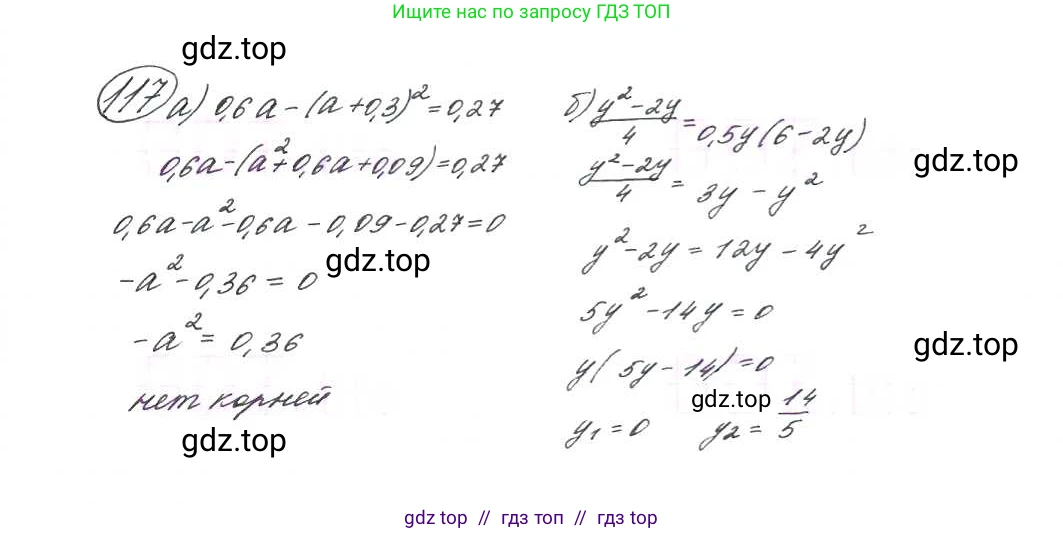 Ищите нас по запросу ГДЗ ТОП
gdz.top
117 а) 0,6a - (a + 0,3)² = 0,27
0,6a - (a² + 0,6a + 0,09) = 0,27
0,6a - a² - 0,6a - 0,09 - 0,27 = 0
gdz.top
-a² - 0,36 = 0
-a² = 0,36
нет корней
gdz.top
б) (y² - 2y)/4 = 0,5y(6 - 2y)
gdz.top
(y² - 2y)/4 = 3y - y²
y² - 2y = 12y - 4y²
5y² - 14y = 0
gdz.top
y(5y - 14) = 0
gdz.top
y₁ = 0 y₂ = 14/5
gdz top // гдз топ // гдз top